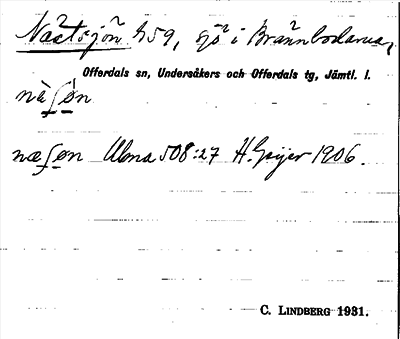 Näätsjön h59, sjö i Brännbodarna,
Offerdals sn, Undersåkers och Offerdals tg, Jämtl. l.
nàʃøn
næʃøn Ulma 508:27 H. Geijer 1906.
C. LINDBERG 1931.